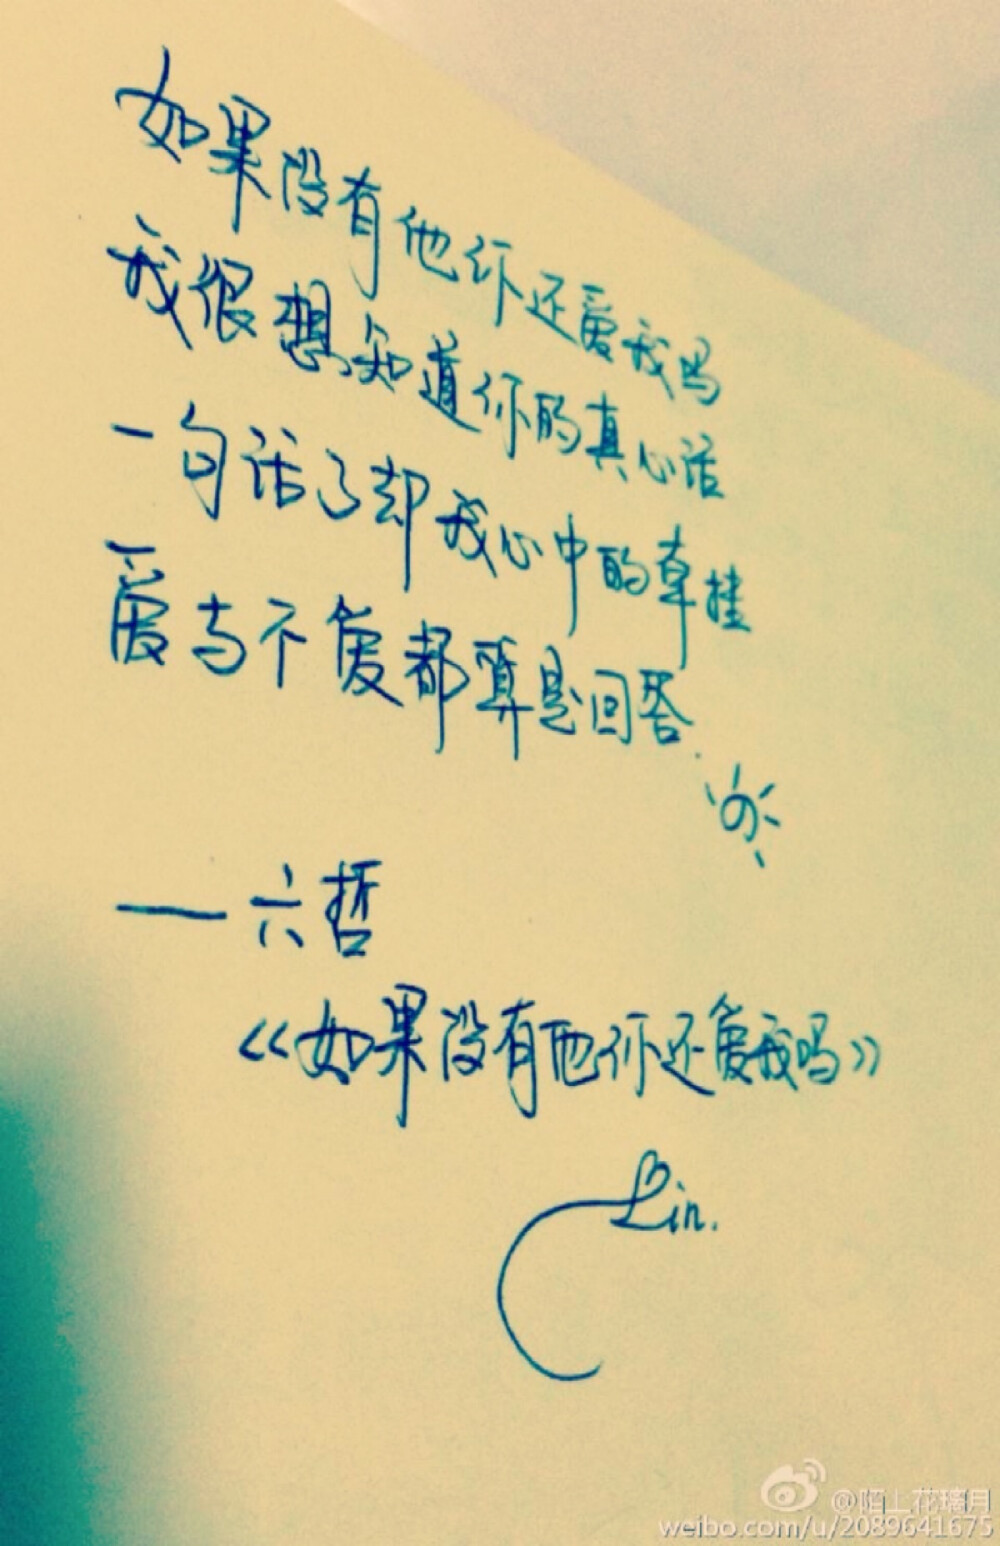 如果没有他你还爱我吗
我很想知道你的真心话
一句话了却我心中的牵挂
爱与不爱都算是回答.
——六哲
《如果没有他你还爱我吗》
Lin.
@陌上花璃月
weibo.com/u/2089641675